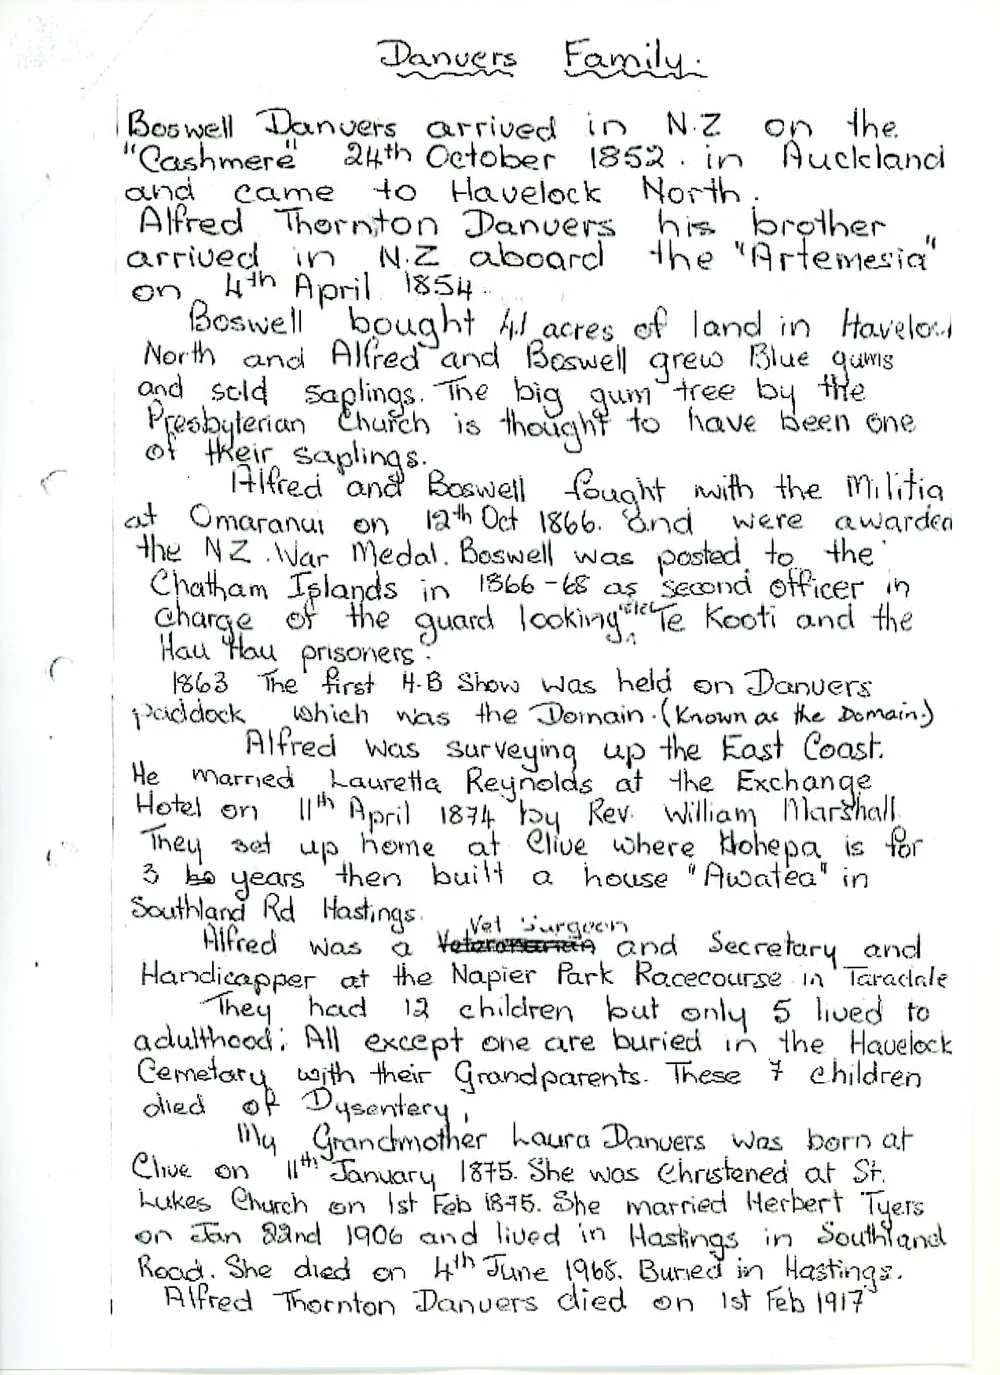 Danvers Family.
Boswell Danvers arrived in N.Z on the
"Cashmere" 24th October 1852. in Auckland
and came to Havelock North.
Alfred Thornton Danvers his brother
arrived in N.Z aboard the "Artemesia"
on 4th April 1854.
Boswell bought 41 acres of land in Havelock
North and Alfred and Boswell grew Blue gums
and sold saplings. The big gum tree by the
Presbyterian Church is thought to have been one
of their saplings.
Alfred and Boswell fought with the Militia
at Omaranui on 12th Oct 1866. and were awarded
the N.Z. War Medal. Boswell was posted to the
Chatham Islands in 1866-68 as second officer in
charge of the guard looking after Te Kooti and the
Hau Hau prisoners.
1863 The first H.B Show was held on Danvers
paddock which was the Domain. (Known as the Domain.)
Alfred was surveying up the East Coast.
He married Lauretta Reynolds at the Exchange
Hotel on 11th April 1874 by Rev. William Marshall.
They set up home at Clive where Hohepa is for
3 years then built a house "Awatea" in
Southland Rd Hastings.
Alfred was a Vet Surgeon and Secretary and
Handicapper at the Napier Park Racecourse in Taradale
They had 12 children but only 5 lived to
adulthood; All except one are buried in the Havelock
Cemetary with their Grandparents. These 7 children
died of Dysentery.
My Grandmother Laura Danvers was born at
Clive on 11th January 1875. She was Christened at St.
Lukes Church on 1st Feb 1875. She married Herbert Tyers
on Jan 22nd 1906 and lived in Hastings in Southland
Road. She died on 4th June 1968. Buried in Hastings.
Alfred Thornton Danvers died on 1st Feb 1917